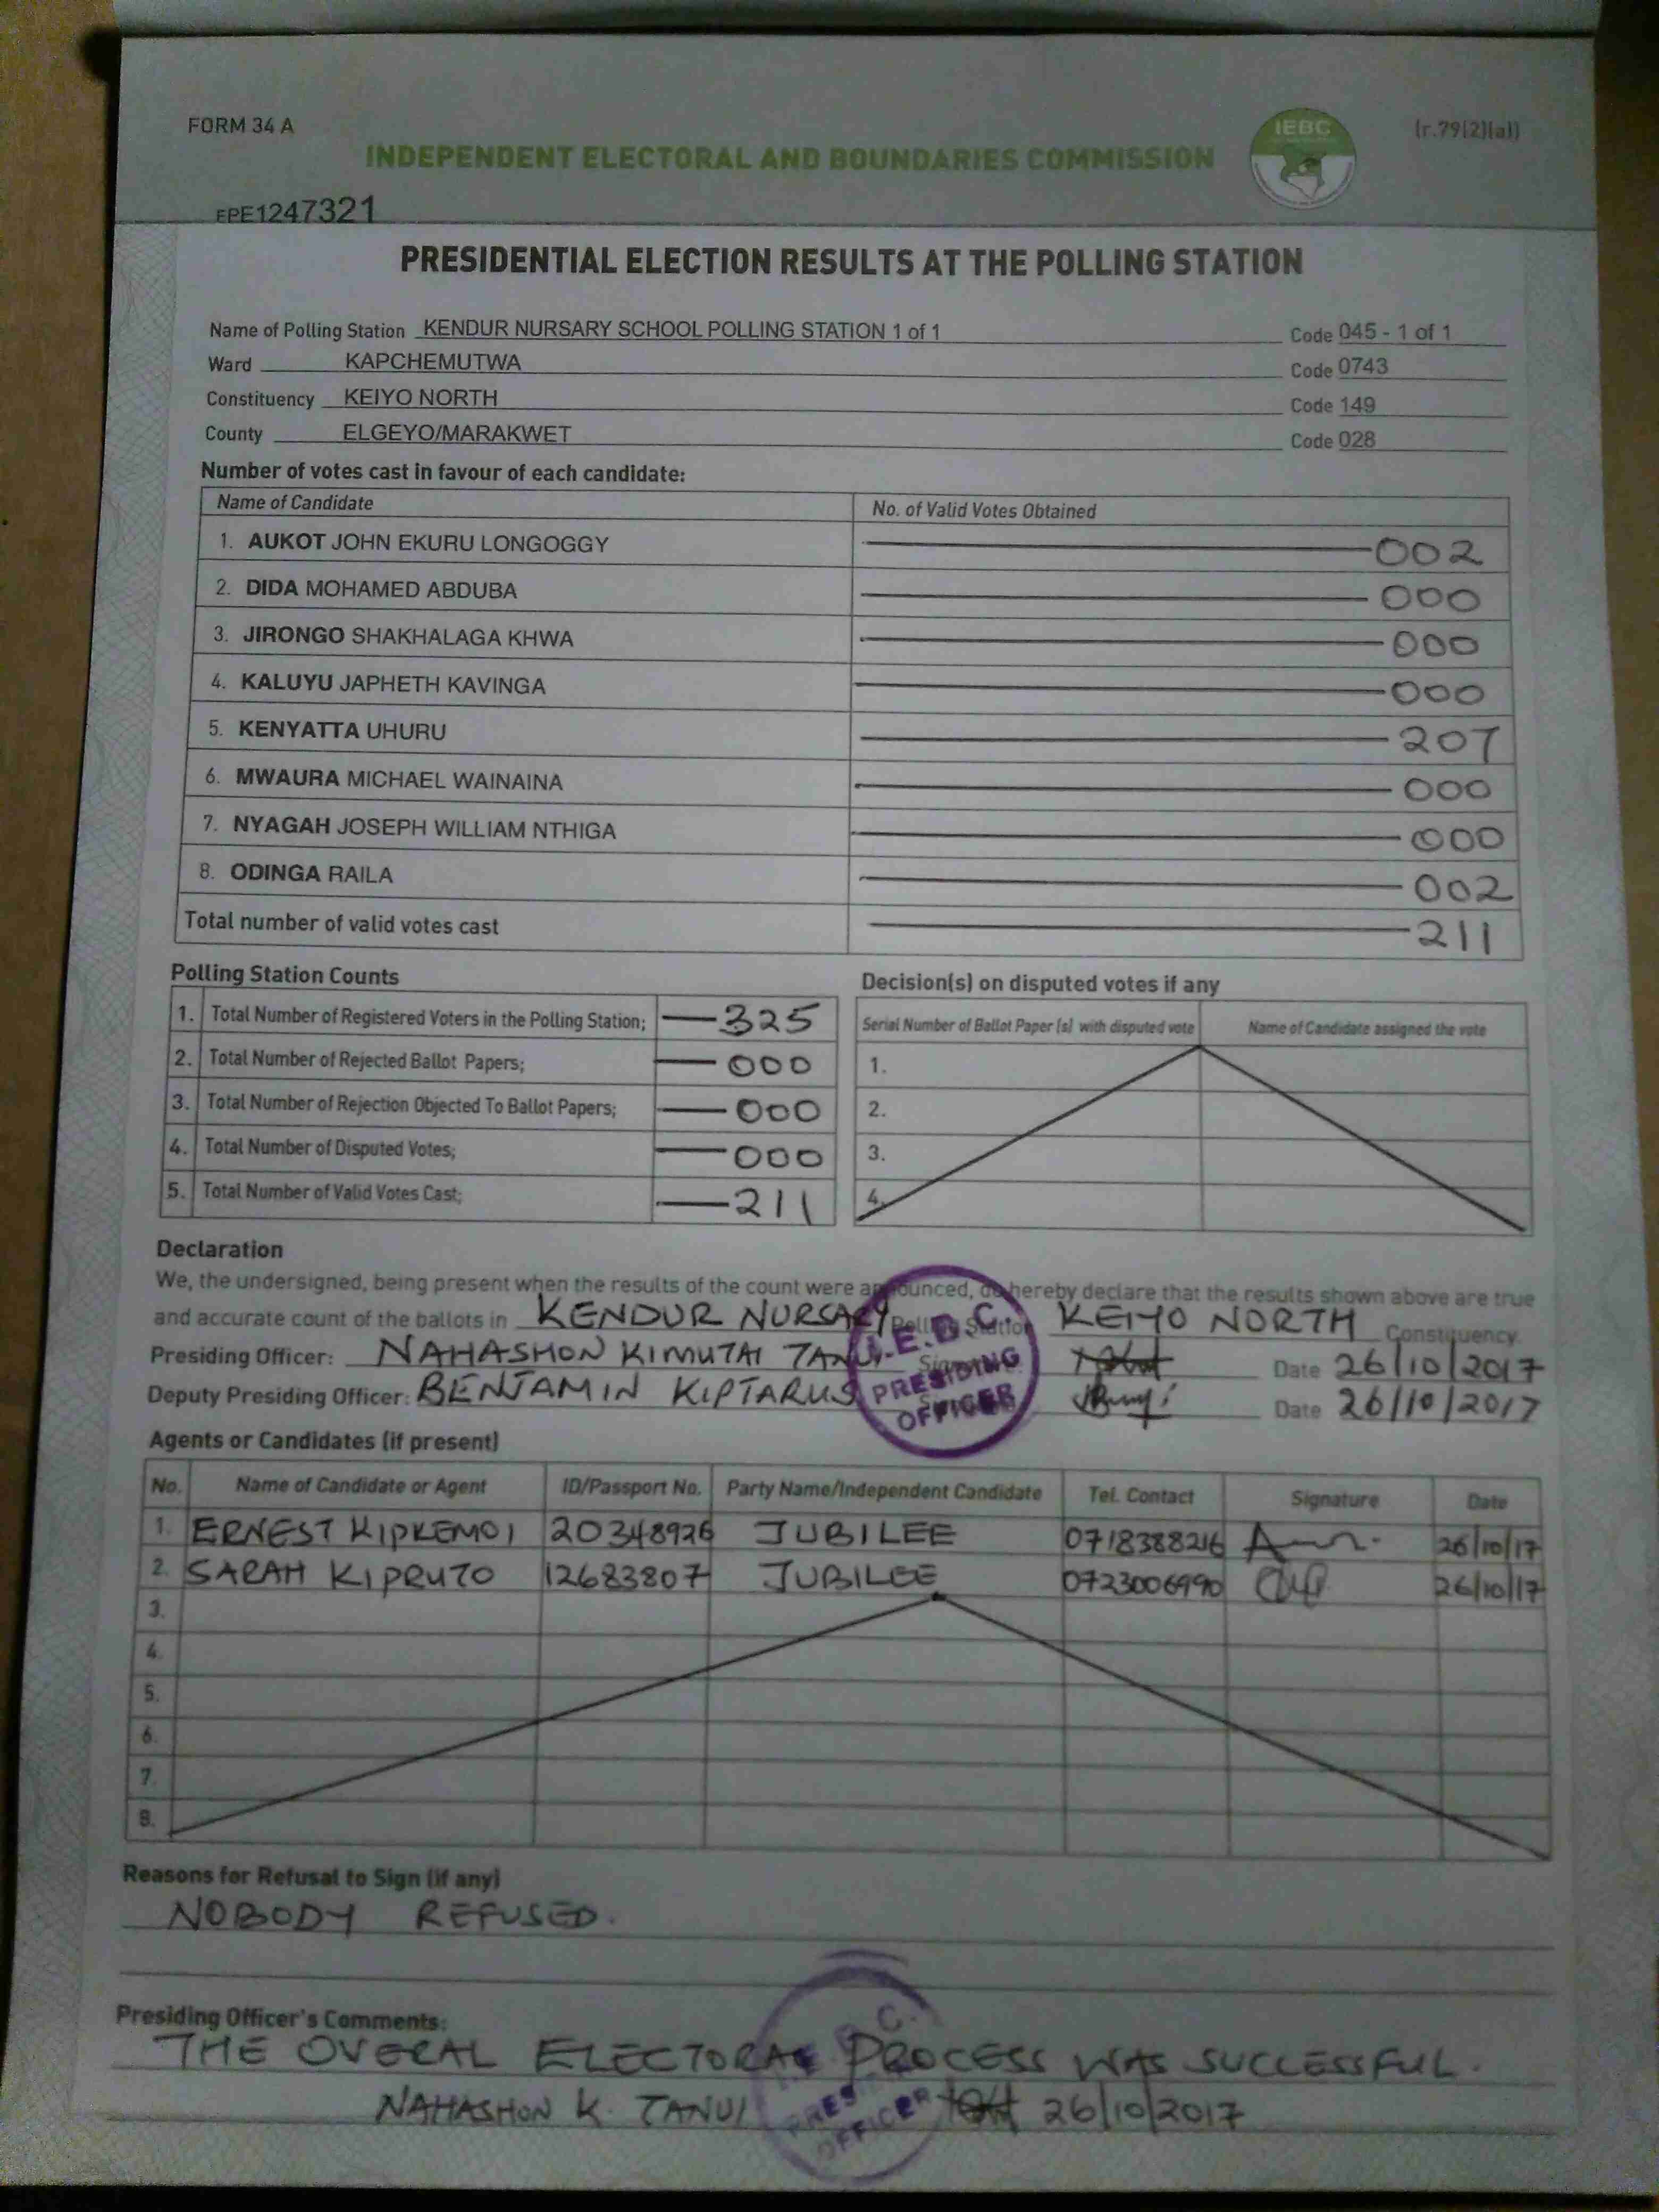 FORM 34 A
IEBC
(r.79(2)(a))
INDEPENDENT ELECTORAL AND BOUNDARIES COMMISSION
EPE1247321
PRESIDENTIAL ELECTION RESULTS AT THE POLLING STATION
Name of Polling Station KENDUR NURSARY SCHOOL POLLING STATION 1 of 1 Code 045 - 1 of 1
Ward KAPCHEMUTWA Code 0743
Constituency KEIYO NORTH Code 149
County ELGEYO/MARAKWET Code 028
Number of votes cast in favour of each candidate:
Name of Candidate No. of Valid Votes Obtained
1. AUKOT JOHN EKURU LONGOGGY 002
2. DIDA MOHAMED ABDUBA 000
3. JIRONGO SHAKHALAGA KHWA 000
4. KALUYU JAPHETH KAVINGA 000
5. KENYATTA UHURU 207
6. MWAURA MICHAEL WAINAINA 000
7. NYAGAH JOSEPH WILLIAM NTHIGA 000
8. ODINGA RAILA 002
Total number of valid votes cast 211
Polling Station Counts
1. Total Number of Registered Voters in the Polling Station; 325
2. Total Number of Rejected Ballot Papers; 000
3. Total Number of Rejection Objected To Ballot Papers; 000
4. Total Number of Disputed Votes; 000
5. Total Number of Valid Votes Cast; 211
Decision(s) on disputed votes if any
Serial Number of Ballot Paper (s) with disputed vote Name of Candidate assigned the vote
1.
2.
3.
4.
Declaration
We, the undersigned, being present when the results of the count were announced, do hereby declare that the results shown above are true
and accurate count of the ballots in KENDUR NURSARY Polling Station KEIYO NORTH Constituency.
Presiding Officer: NAHASHON KIMUTAI TANUI Date 26/10/2017
Deputy Presiding Officer: BENJAMIN KIPTARUS Date 26/10/2017
I.E.B.C.
PRESIDING
OFFICER
Agents or Candidates (if present)
No. Name of Candidate or Agent ID/Passport No. Party Name/Independent Candidate Tel. Contact Signature Date
1. ERNEST KIPKEMOI 20348926 JUBILEE 0718388216 26/10/17
2. SARAH KIPRUTO 12683807 JUBILEE 0723006990 26/10/17
3.
4.
5.
6.
7.
8.
Reasons for Refusal to Sign (if any)
NOBODY REFUSED.
Presiding Officer's Comments:
THE OVERAL ELECTORAL PROCESS WAS SUCCESSFUL.
NAHASHON K. TANUI 26/10/2017
I.E.B.C.
PRESIDING
OFFICER